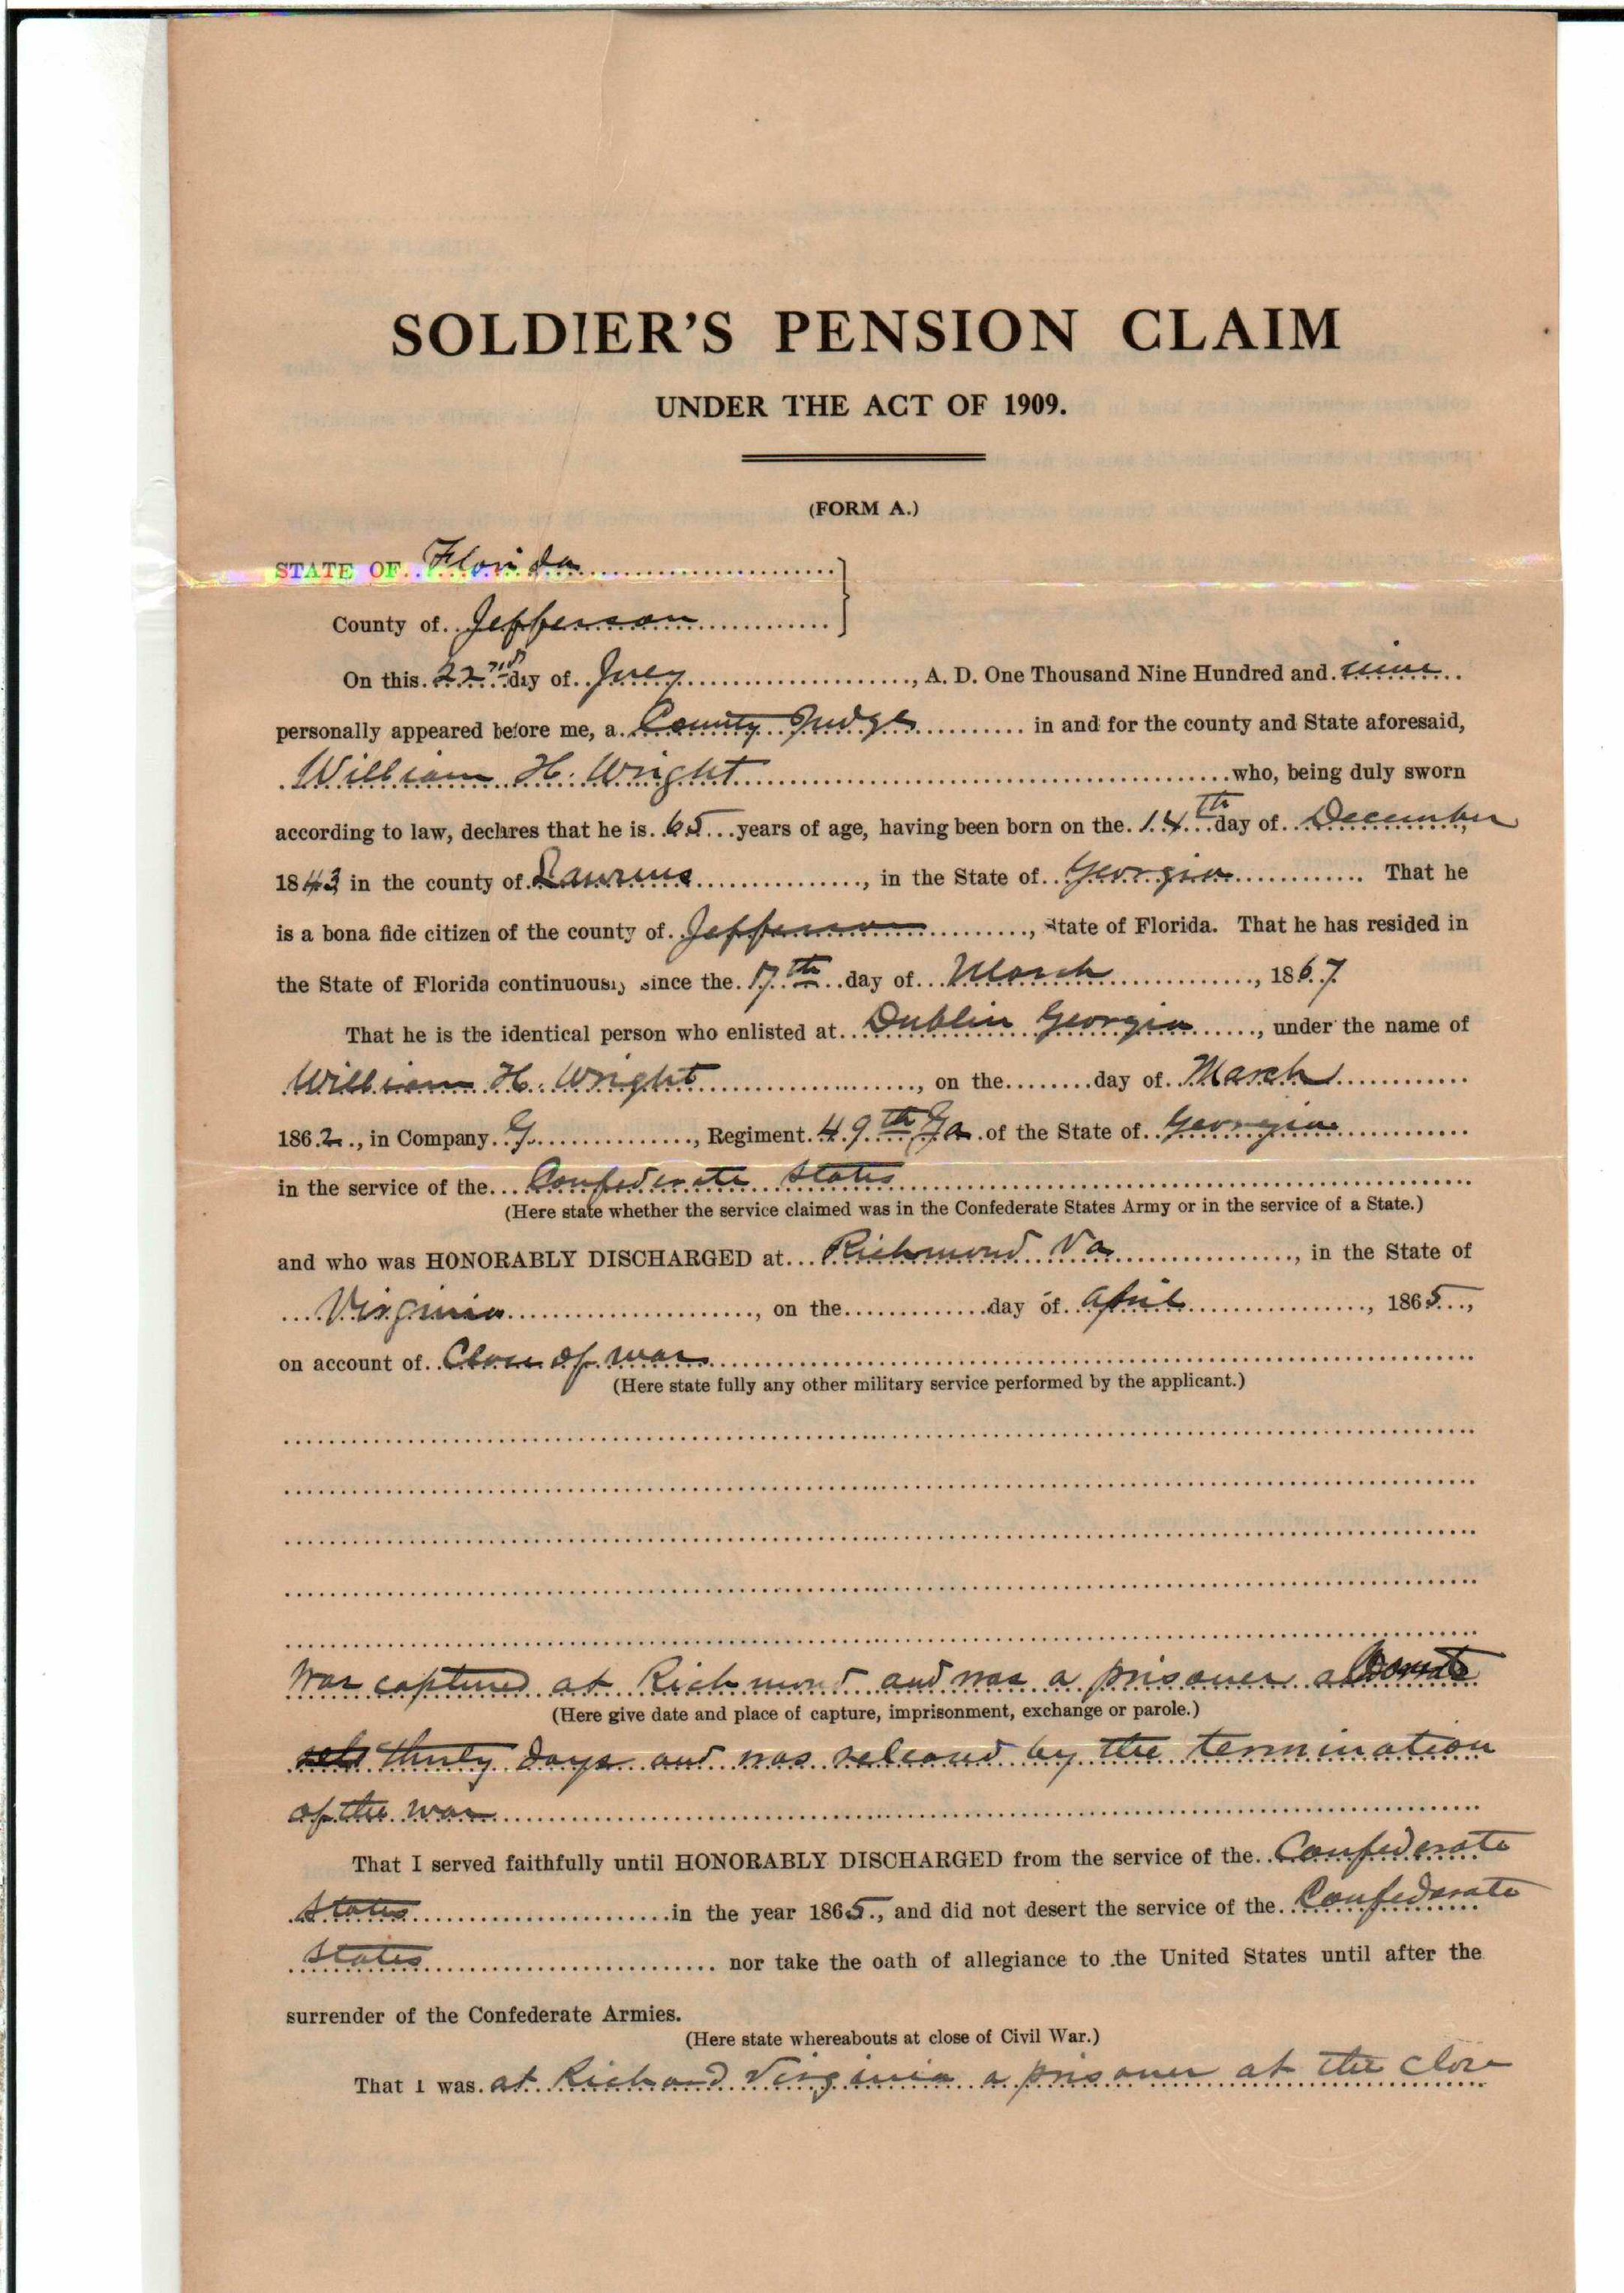 SOLDIER'S PENSION CLAIM
UNDER THE ACT OF 1909.
(FORM A.)
STATE OF Florida
County of Jefferson
On this 22nd day of July, A. D. One Thousand Nine Hundred and nine
personally appeared before me, a County Judge in and for the county and State aforesaid,
William H. Wright who, being duly sworn
according to law, declares that he is 65 years of age, having been born on the 14th day of December
1843 in the county of Laurens, in the State of Georgia. That he
is a bona fide citizen of the county of Jefferson, State of Florida. That he has resided in
the State of Florida continuously since the 17th day of March, 1867
That he is the identical person who enlisted at Dublin Georgia, under the name of
William H. Wright, on the day of March
1862, in Company G, Regiment 49th Ga of the State of Georgia
in the service of the Confederate States
(Here state whether the service claimed was in the Confederate States Army or in the service of a State.)
and who was HONORABLY DISCHARGED at Richmond Va, in the State of
Virginia, on the day of April, 1865,
on account of Close of war
(Here state fully any other military service performed by the applicant.)
War captured at Richmond and was a prisoner
(Here give date and place of capture, imprisonment, exchange or parole.)
thirty days and was released by the termination
of the war
That I served faithfully until HONORABLY DISCHARGED from the service of the Confederate
States in the year 1865, and did not desert the service of the Confederate
States nor take the oath of allegiance to the United States until after the
surrender of the Confederate Armies.
(Here state whereabouts at close of Civil War.)
That I was at Richmond Virginia a prisoner at the close